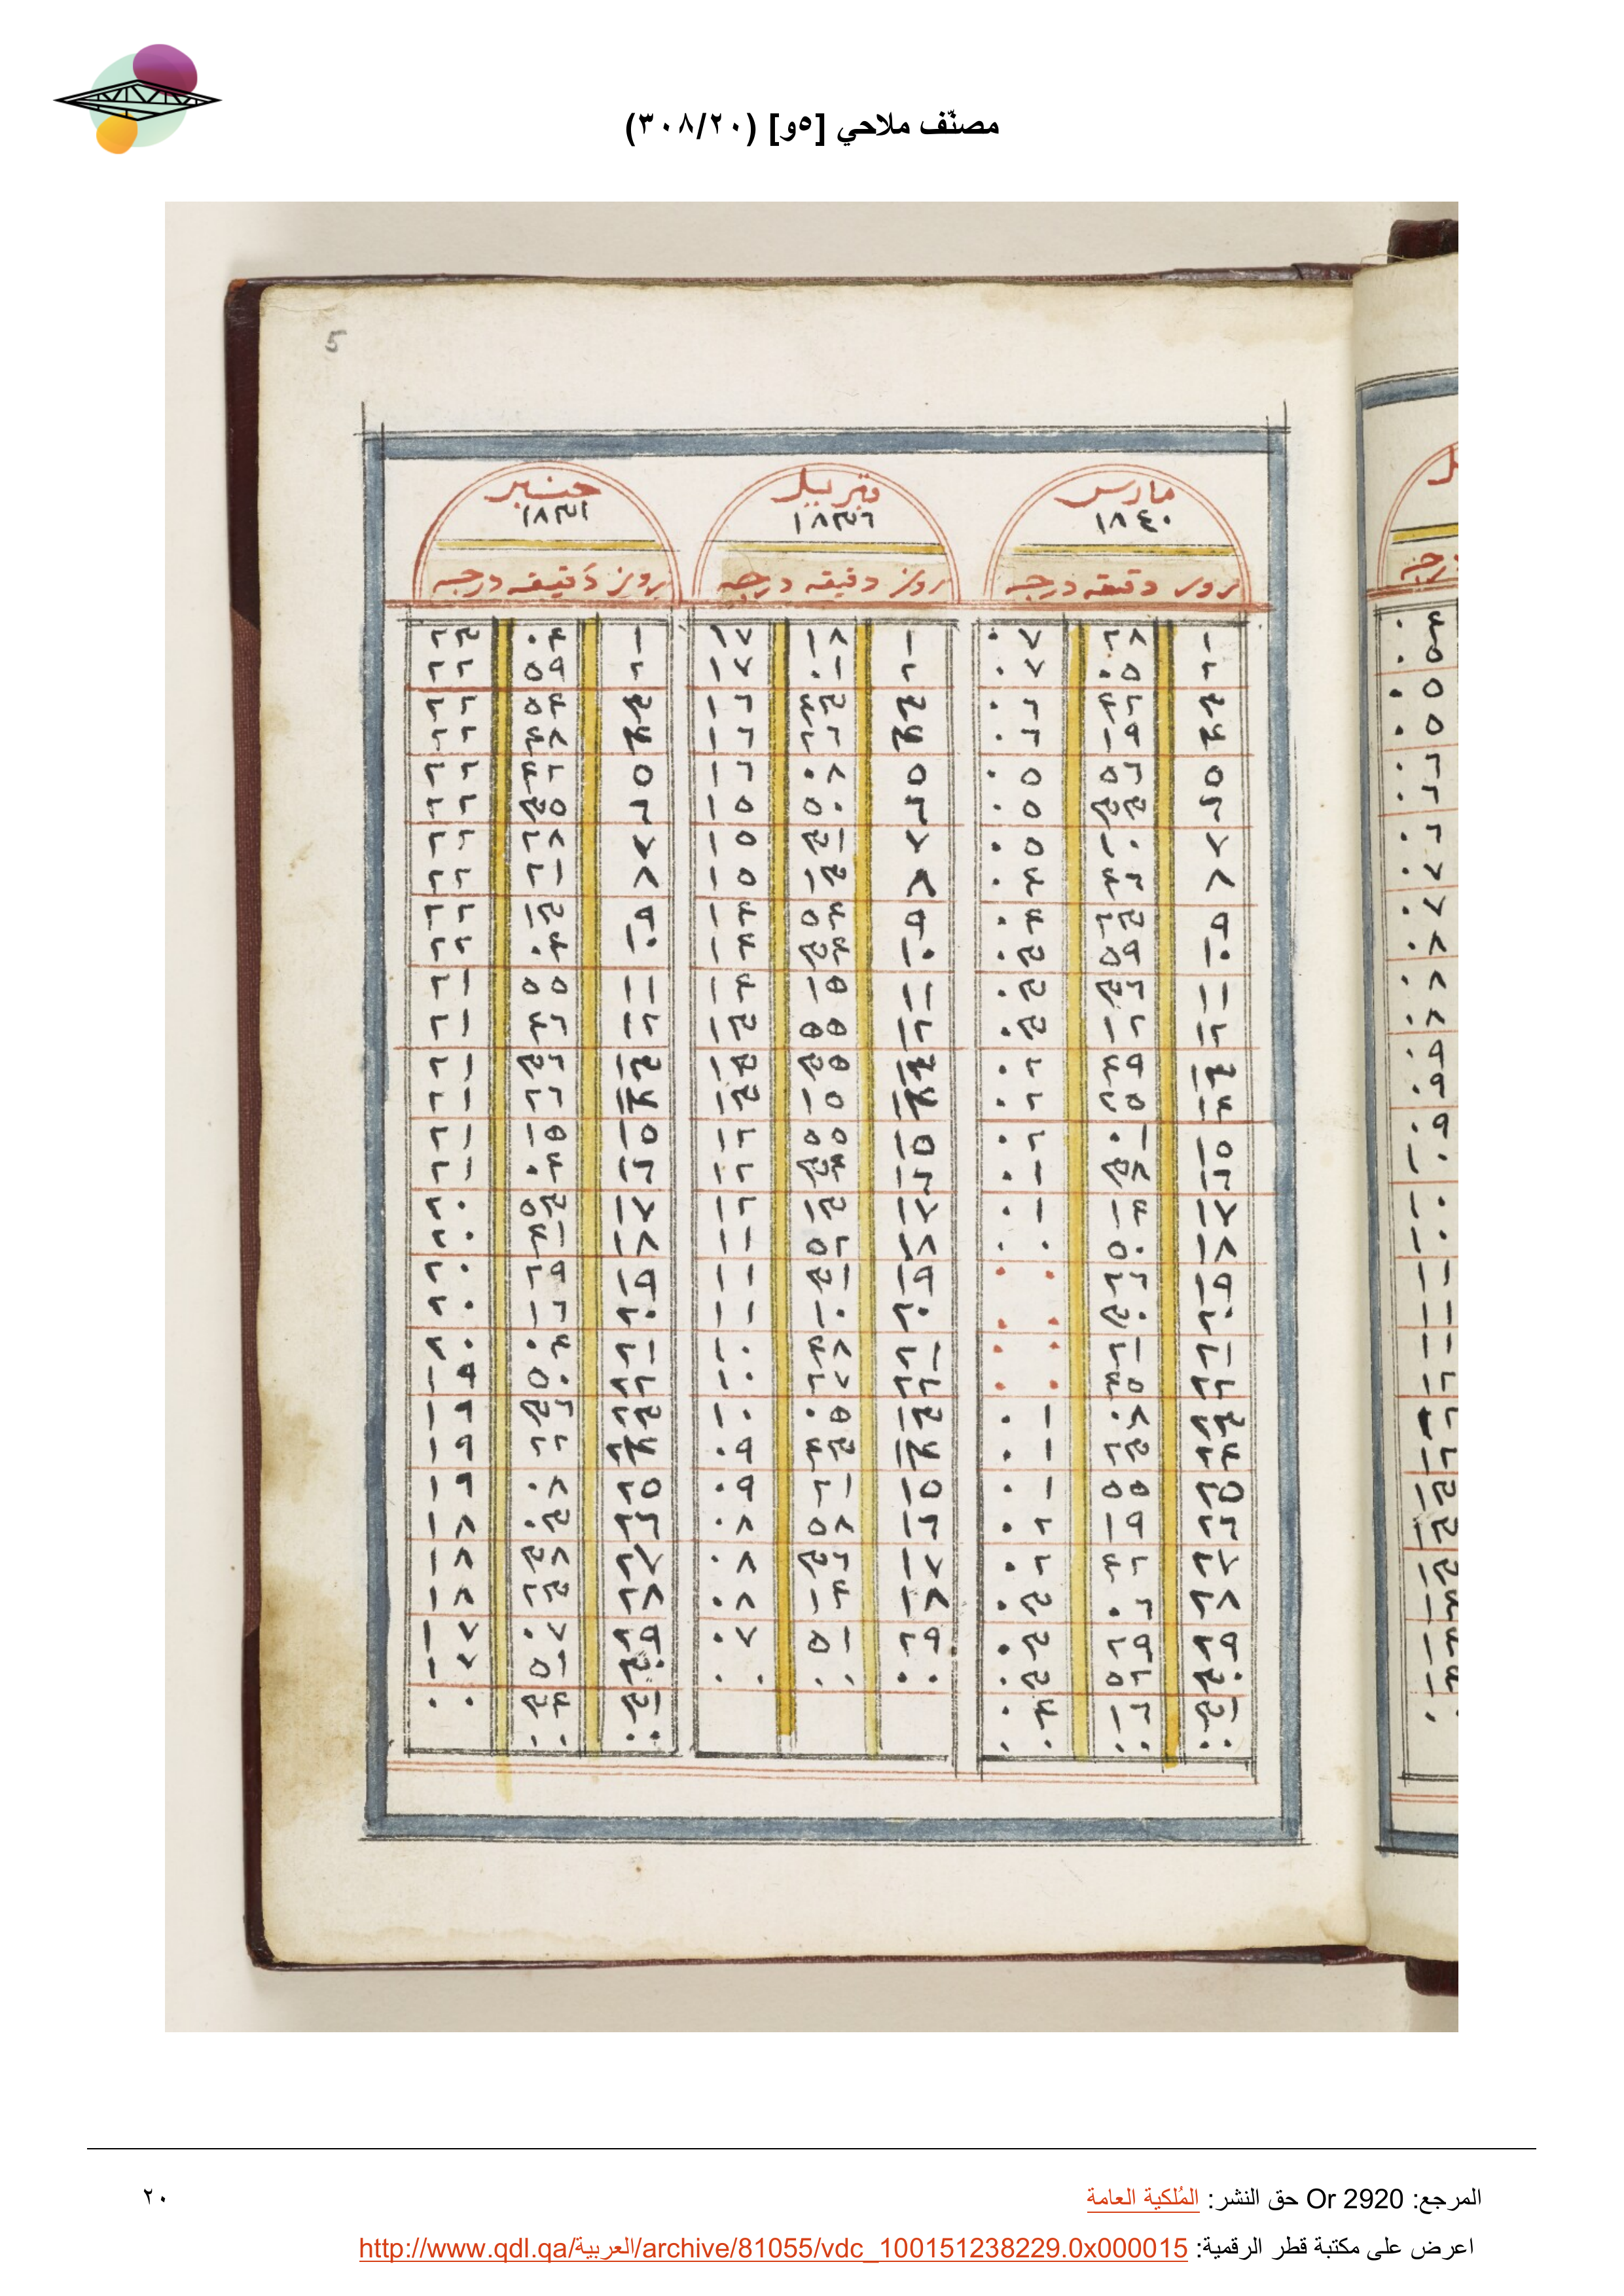 مصنّف ملاحي [٥و] (٣٠٨/٢٠)
5
مارس
١٨٤٠
روز دقيقه درجه
١ ٢٨ ٠٧
٢ ٠٥ ٠٧
٣ ٤٢ ٠٦
٤ ١٩ ٠٦
٥ ٥٦ ٠٥
٦ ٣٣ ٠٥
٧ ١٠ ٠٥
٨ ٤٦ ٠٤
٩ ٢٣ ٠٤
١٠ ٥٩ ٠٣
١١ ٣٦ ٠٣
١٢ ١٢ ٠٣
١٣ ٤٩ ٠٢
١٤ ٢٥ ٠٢
١٥ ٠١ ٠٢
١٦ ٣٨ ٠١
١٧ ١٤ ٠١
١٨ ٥٠ ٠٠
١٩ ٢٦ ٠٠
٢٠ ٣٠ ٠٠
٢١ ٢١ ٠٠
٢٢ ٤٥ ٠٠
٢٣ ٠٨ ٠١
٢٤ ٢٣ ٠١
٢٥ ٥٥ ٠١
٢٦ ١٩ ٠٢
٢٧ ٤٢ ٠٢
٢٨ ٠٦ ٠٣
٢٩ ٢٩ ٠٣
٣٠ ٥٢ ٠٣
٣١ ١٦ ٠٤
٠٠ ٠٠ ٠٠
فبريل
١٨٣٦
روز دقيقه درجه
١ ١٨ ١٧
٢ ٠١ ١٧
٣ ٤٣ ١٦
٤ ٢٦ ١٦
٥ ٠٨ ١٦
٦ ٥٠ ١٥
٧ ٣١ ١٥
٨ ١٣ ١٥
٩ ٥٤ ١٤
١٠ ٣٤ ١٤
١١ ١٥ ١٤
١٢ ٥٥ ١٣
١٣ ٣٥ ١٣
١٤ ١٥ ١٣
١٥ ٥٥ ١٢
١٦ ٣٤ ١٢
١٧ ١٣ ١٢
١٨ ٥٢ ١١
١٩ ٣١ ١١
٢٠ ١٠ ١١
٢١ ٤٨ ١٠
٢٢ ٢٧ ١٠
١٣ ٠٥ ١٠
١٤ ٤٣ ٠٩
١٥ ٢١ ٠٩
١٦ ٥٨ ٠٨
١٧ ٣٦ ٠٨
١٨ ١٤ ٠٨
٢٩ ٥١ ٠٧
٠٠ ٠٠ ٠٠
جنبر
١٨٣١
روز دقيقه درجه
١ ٠٤ ٢٣
٢ ٥٩ ٢٢
٣ ٥٤ ٢٢
٤ ٤٨ ٢٢
٥ ٤٢ ٢٢
٦ ٣٥ ٢٢
٧ ٢٨ ٢٢
٨ ٢١ ٢٢
٩ ١٣ ٢٢
١٠ ٠٤ ٢٢
١١ ٥٥ ٢١
١٢ ٤٦ ٢١
١٣ ٣٦ ٢١
١٤ ٢٦ ٢١
١٥ ١٥ ٢١
١٦ ٠٤ ٢١
١٧ ٥٣ ٢٠
١٨ ٤١ ٢٠
١٩ ٢٩ ٢٠
٢٠ ١٦ ٢٠
٢١ ٠٤ ٢٠
٢٢ ٥٠ ١٩
٢٣ ٣٦ ١٩
٢٤ ٢٢ ١٩
٢٥ ٠٨ ١٩
٢٦ ٠٣ ١٨
٢٧ ٣٨ ١٨
٢٨ ٢٣ ١٨
٢٩ ٠٧ ١٧
٣٠ ٥١ ١٧
٣١ ٣٤ ٠٠
٠٠ ٠٠
المرجع: Or 2920 حق النشر: المُلكية العامة
٢٠
اعرض على مكتبة قطر الرقمية: http://www.qdl.qa/العربية/archive/81055/vdc_100151238229.0x000015